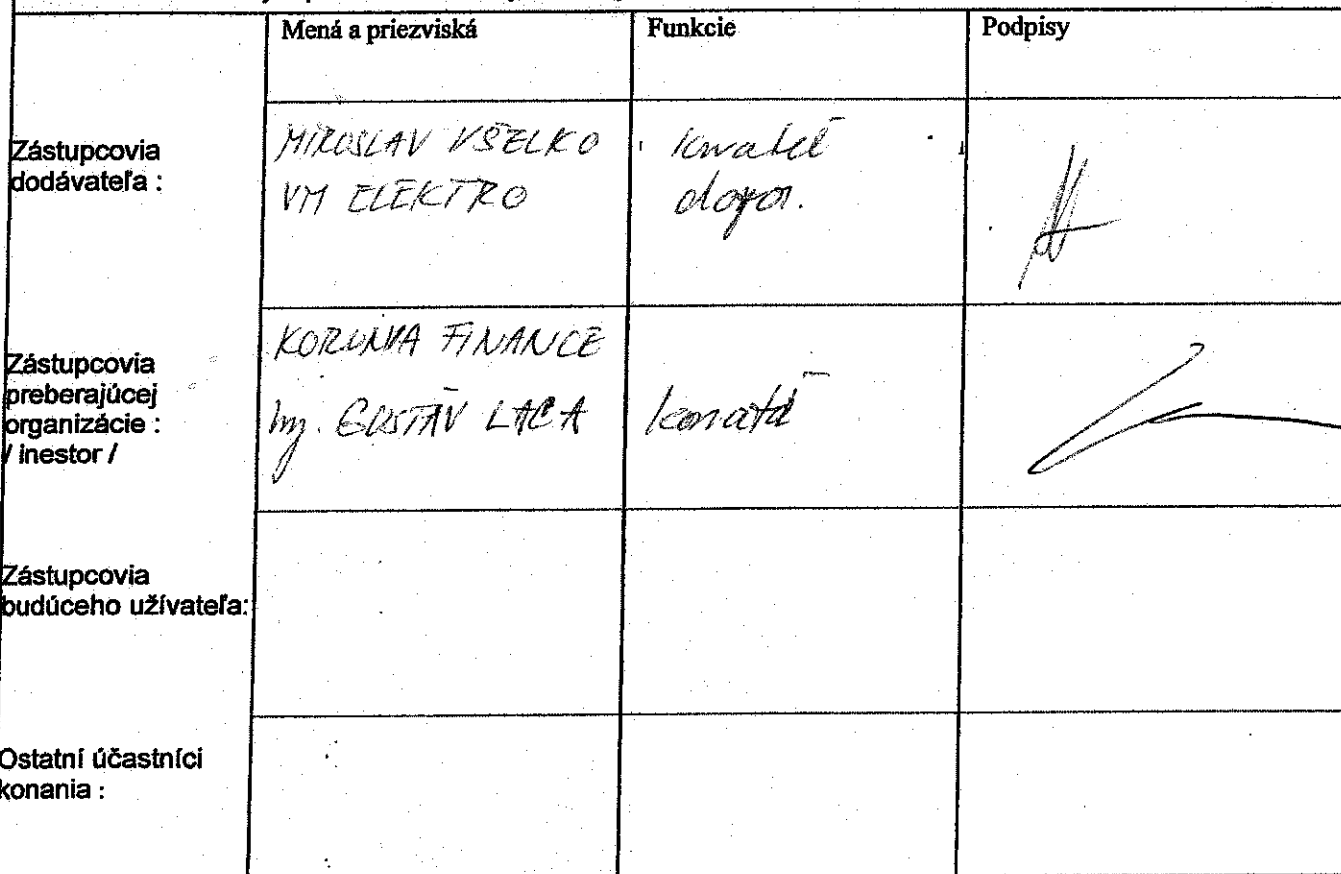 Mená a priezviská Funkcie Podpisy
Zástupcovia
dodávateľa :
MIROSLAV VŠELKO
VM ELEKTRO
Zástupcovia
preberajúcej
organizácie :
/ inestor /
KORUNA FINANCE
Ing. GUSTÁV LACA
Zástupcovia
budúceho užívateľa:
Ostatní účastníci
konania :